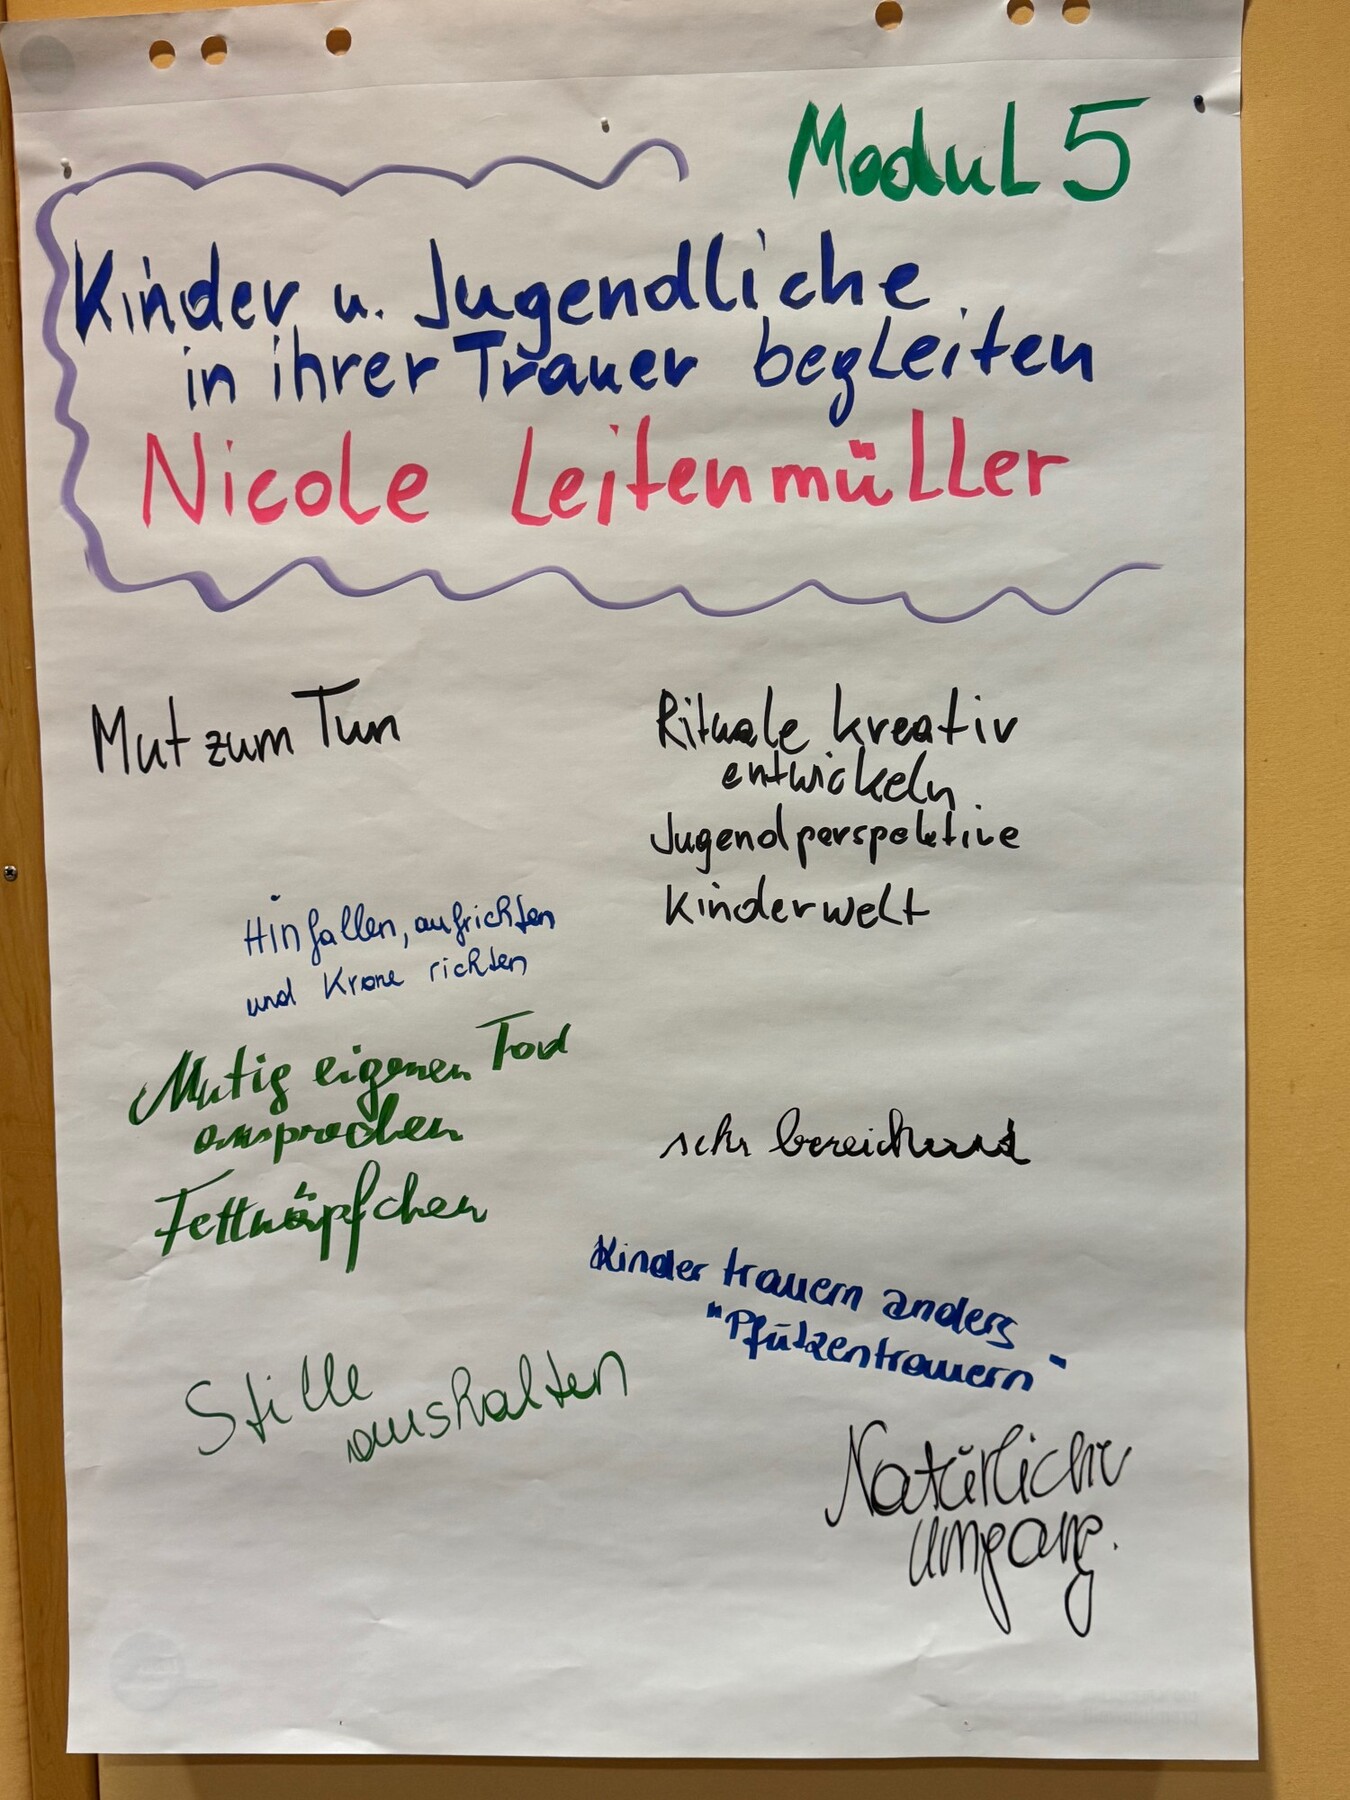 Modul 5
Kinder u. Jugendliche
in ihrer Trauer begleiten
Nicole Leitenmüller
Mut zum Tun
Rituale kreativ
entwickeln
Jugendperspektive
Kinderwelt
Hinfallen, aufrichten
und Krone richten
Mutig eigenen Tod
ansprechen
Fettnäpfchen
sehr bereichernd
Kinder trauern anders
"Pfützentrauern"
Stille
aushalten
Natürliche
Umgang.